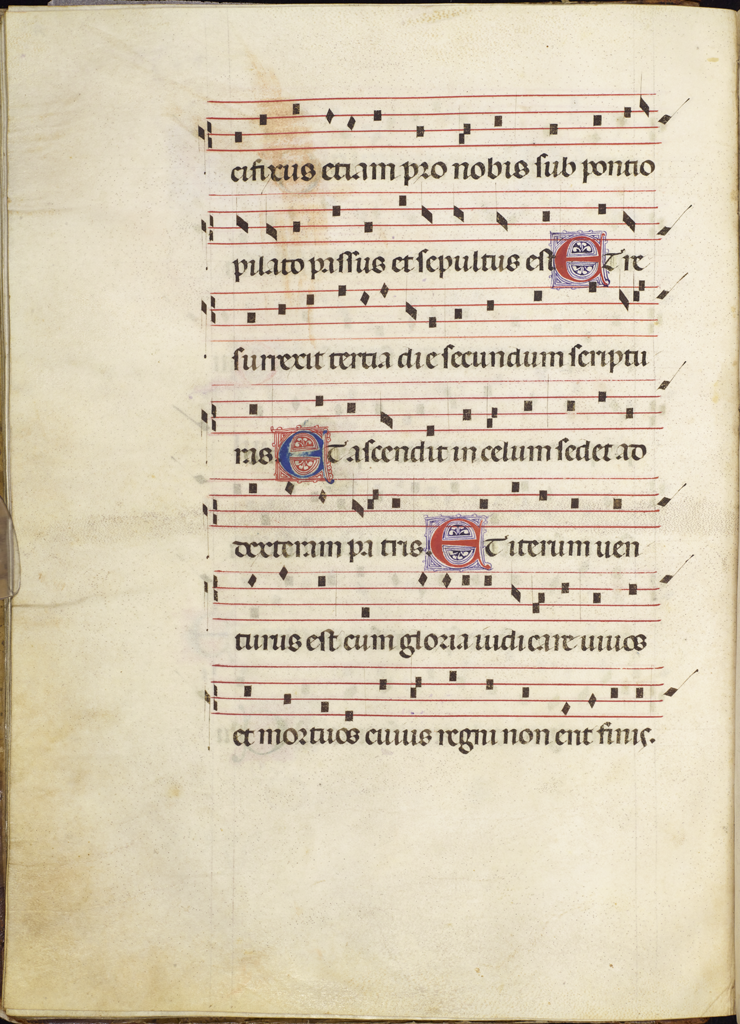 cifixus etiam pro nobis sub pontio
pilato passus et sepultus est Et re
surrexit tertia die secundum scriptu
ris Et ascendit in celum sedet ad
dexteram patris Et iterum uen
turus est cum gloria iudicare uiuos
et mortuos cuius regni non erit finis.